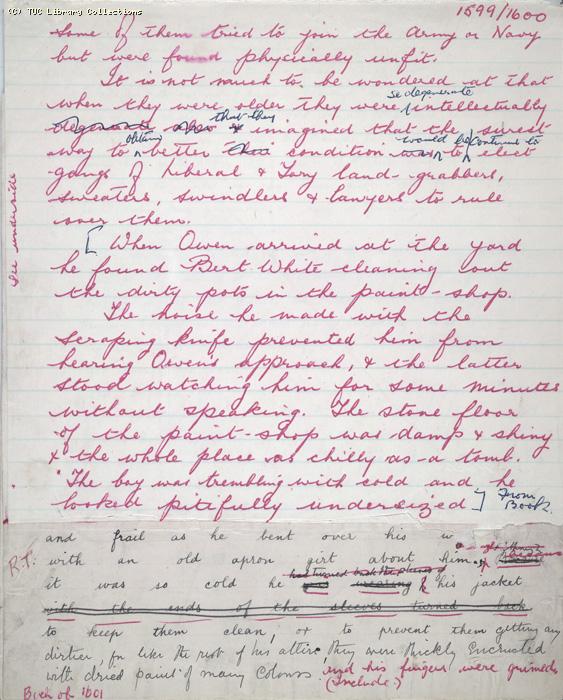 (C) TUC Library Collections
1599/1600
Some of them tried to join the Army or Navy
but were found physically unfit.
It is not much to be wondered at that
so degenerate
when they were older they were intellectually
that they
imagined that the surest
obtain would be continue to
way to better condition was to elect
gangs of Liberal & Tory land-grabbers,
sweaters, swindlers & lawyers to rule
over them.
See underside
[ When Owen arrived at the yard
he found Bert White cleaning out
the dirty pots in the paint-shop.
The noise he made with the
scraping knife prevented him from
hearing Owen's approach, & the latter
stood watching him for some minutes
without speaking. The stone floor
of the paint-shop was damp & shiny
& the whole place as chilly as a tomb.
The boy was trembling with cold and he
looked pitifully undersized ] From Book.
and frail as he bent over his
R.T. with an old apron girt about him.
had turned back the
it was so cold he wearing his jacket
with the ends of the sleeves turned back
to keep them clean, or to prevent them getting any
dirtier, for like the rest of his attire they were thickly encrusted
with dried paint of many colours. and his fingers were grimed
(Include)
Back of 1601